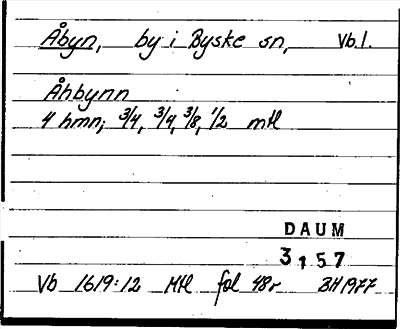 Åbyn, by i Byske sn, Vb.l.
Åhbynn
4 hmn; 3/4, 3/4, 3/8, 1/2 mtl
DAUM
3157
Vb 1619:12 Mtl fol 48r BH 1977